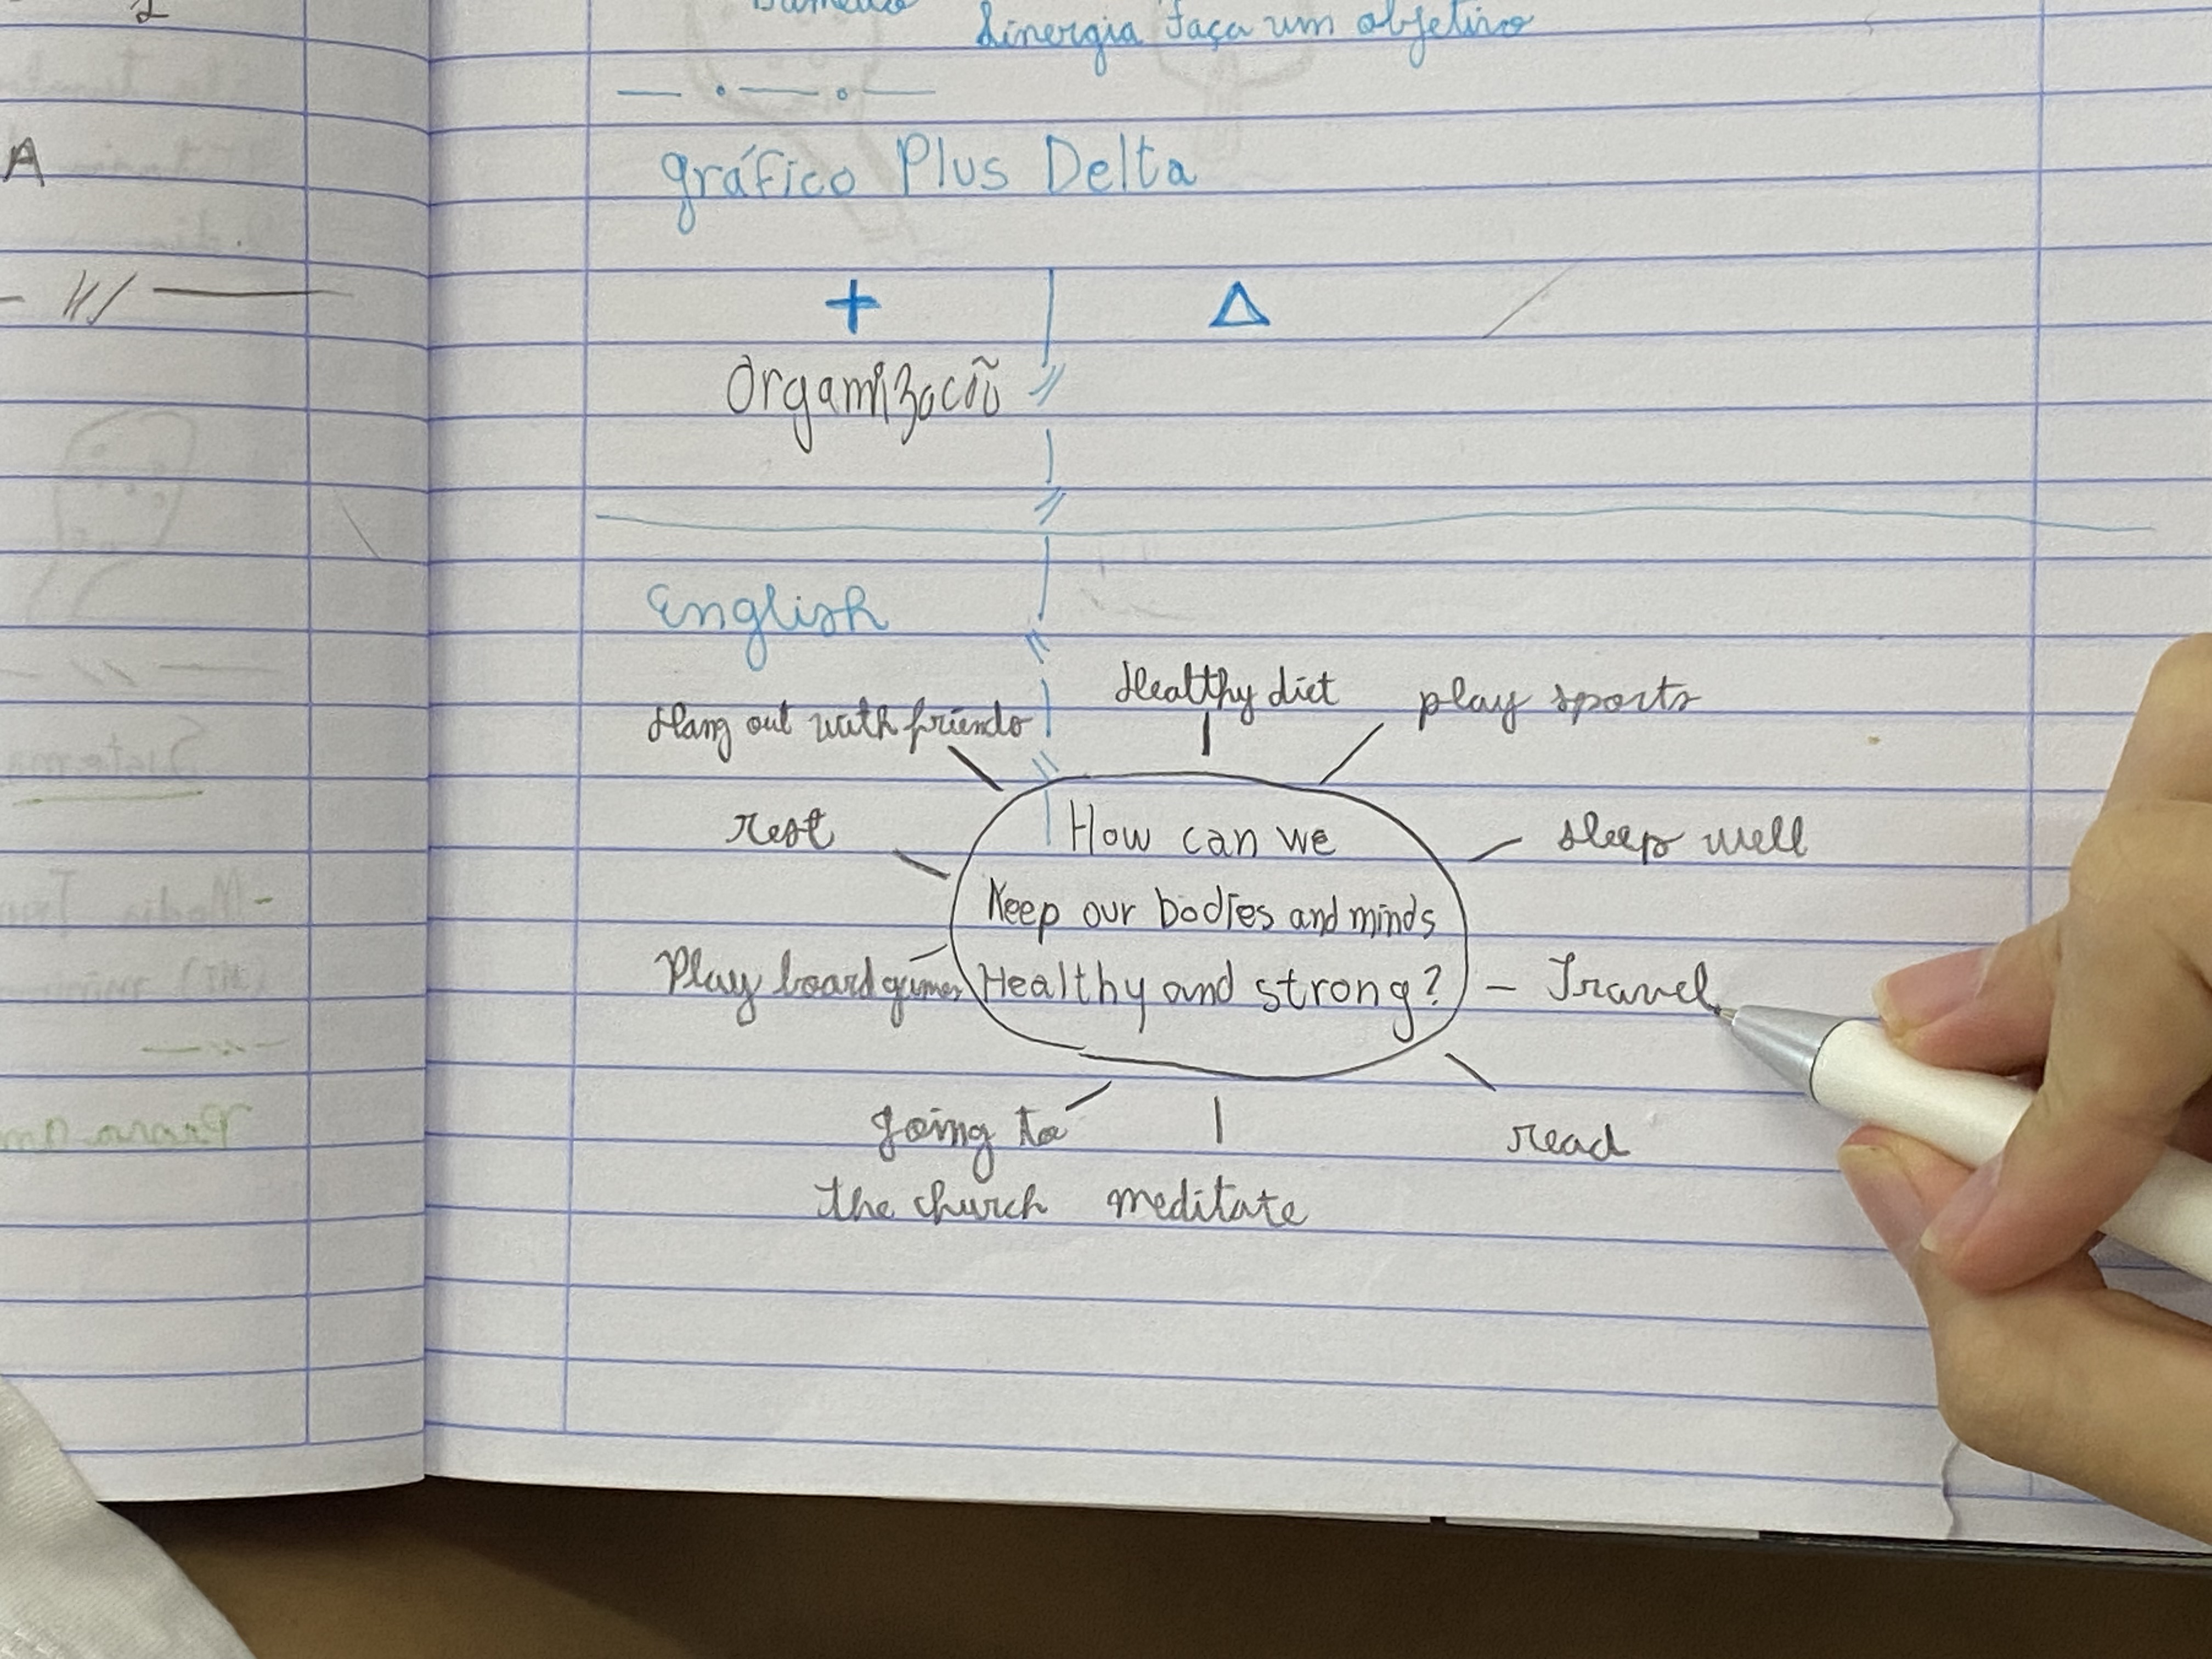 Sinergia faça um objetivo
gráfico Plus Delta
+ Δ
Organizacõ
English
Hang out with friends
Healthy diet
play sports
rest
How can we
sleep well
Keep our bodies and minds
Play board games
Healthy and strong?
Travel
going to
the church
meditate
read
A